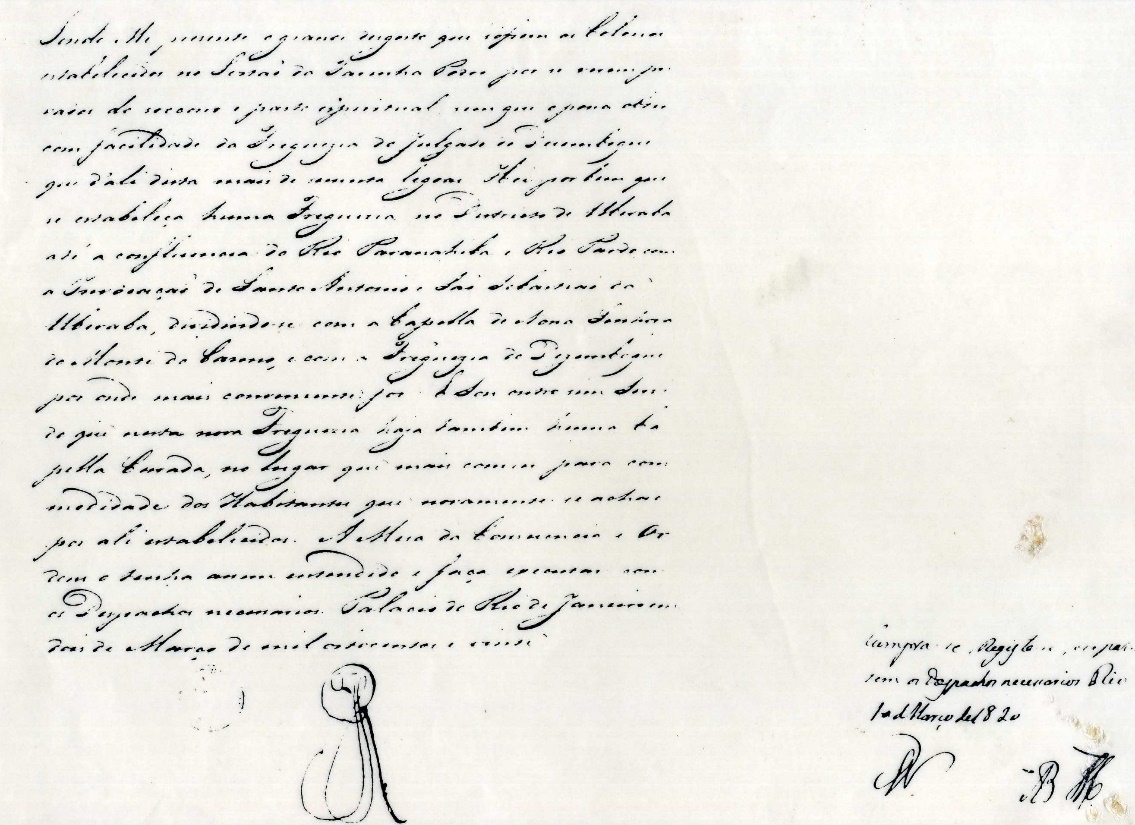 Sendo Me presente o grande disgosto que sofrem os Colonos
estabelecidos no Sertão da Farinha Podre por se verem pri
vados de socorro e pasto espiritual, sem que o possa obter
com facilidade da Freguezia do Julgado de Dezemboque
que d'ali dista mais de sessenta legoas Hei por bem que
se estabeleça huma Freguezia no Districto de Uberaba
até a confluencia do Rio Paranahiba e Rio Pardo, com
a Invocação de Santo Antonio e São Sebastião da
Uberaba, dividindo-se com a Capella de Nossa Senhora
do Monte do Carmo, e com a Freguezia do Dezemboque
por onde mais conveniente for E Sou outro sim Ser
do que nesta nova Freguezia haja tambem huma Ca
pella Curada, no lugar que mais convier para com
modidade dos Habitantes que novamente se achão
por ali estabelecidos. A Mesa da Consciencia e Or
dens o tenha assim entendido e faça executar com
os Despachos necessarios. Palacio do Rio de Janeiro em
dois de Março de mil oitocentos e vinte
Cumpra-se, Registe-se, e se passem
os Despachos necessarios Rio
de Março de 1820